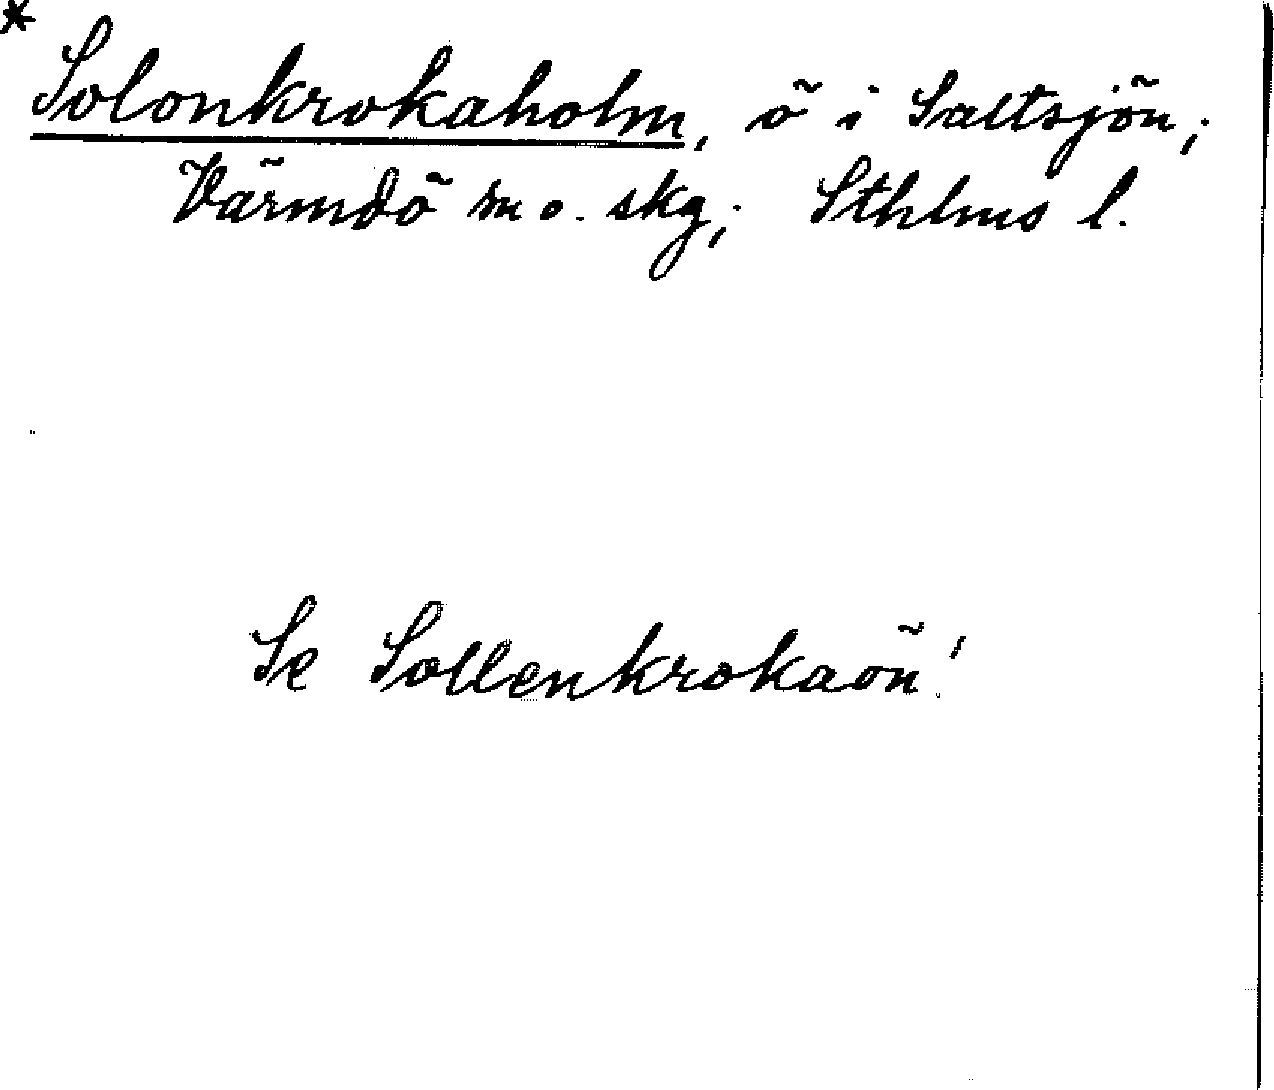 * Solonkrokaholm, ö i Saltsjön;
Värmdö m o. skg; Sthlms l.
Se Sollenkrokaön!